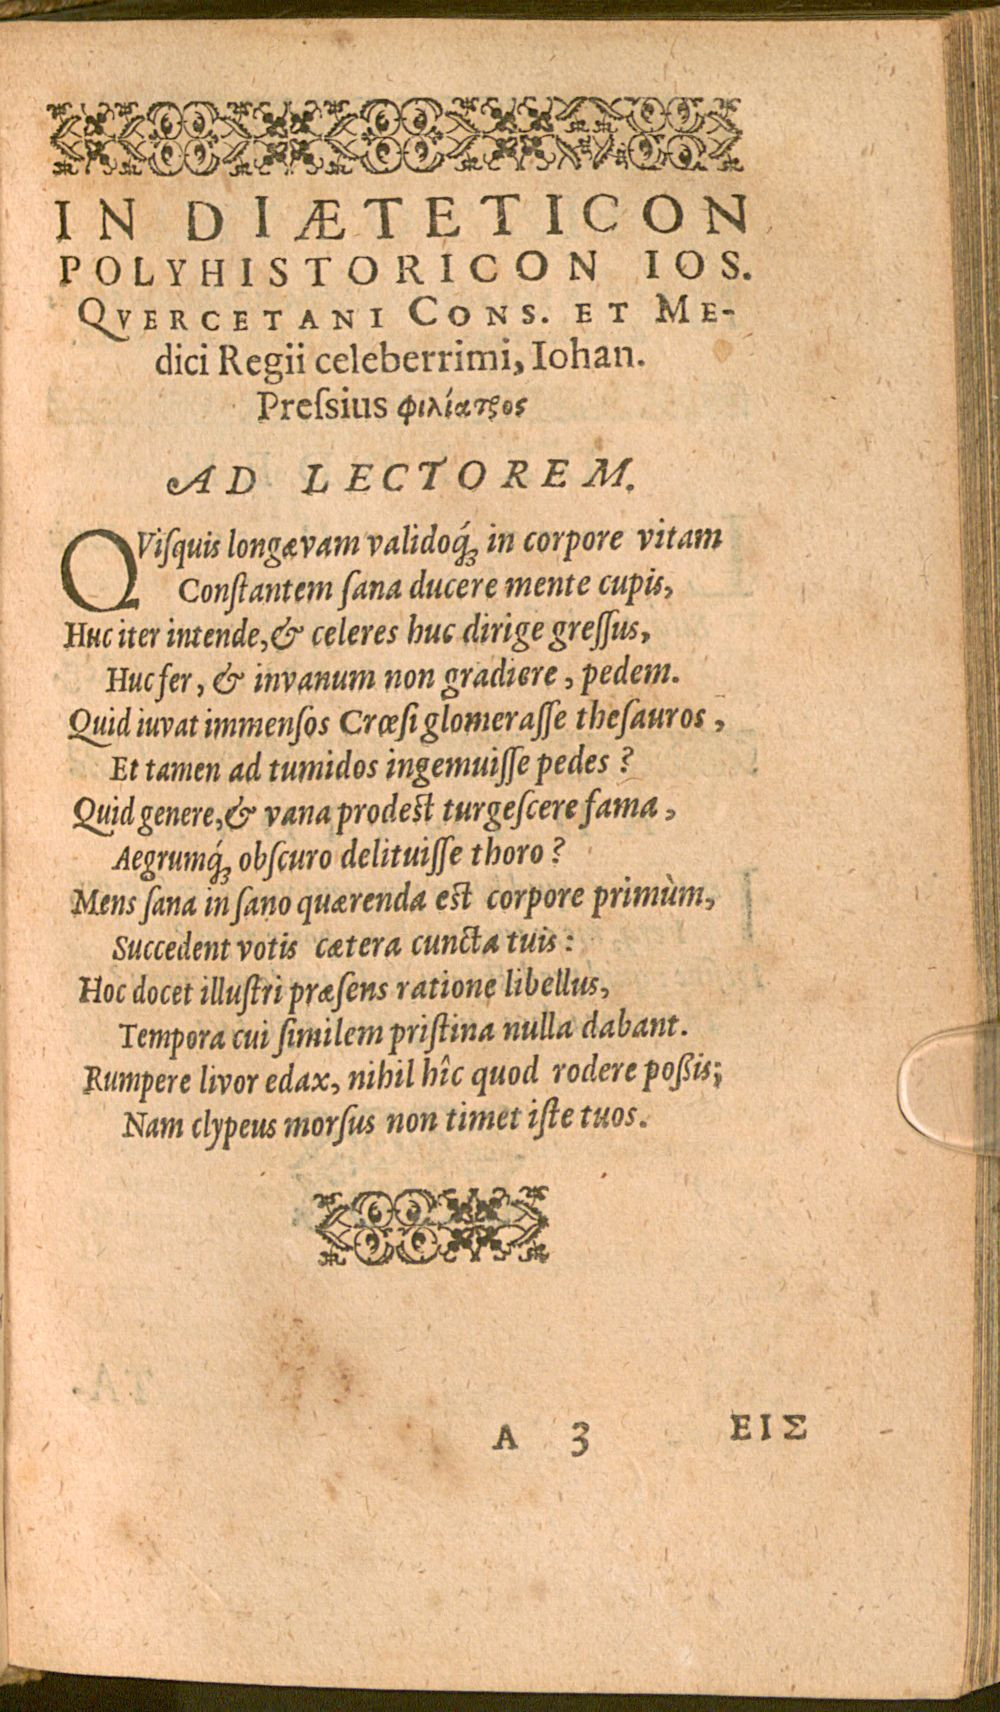 IN DIÆTETICON
POLYHISTORICON IOS.
QVERCETANI CONS. ET ME-
dici Regii celeberrimi, Iohan.
Preſsius φιλίατρος
AD LECTOREM.
QViſquis longævam validoq́ꝫ in corpore vitam
Conſtantem ſana ducere mente cupis,
Huc iter intende, & celeres huc dirige greſſus,
Huc fer, & invanum non gradiere, pedem.
Quid iuvat immenſos Crœſi glomeraſſe theſauros,
Et tamen ad tumidos ingemuiſſe pedes?
Quid genere, & vana prodeſt turgeſcere fama,
Aegrumq́ꝫ obſcuro delituiſſe thoro?
Mens ſana in ſano quærenda eſt corpore primùm,
Succedent votis cætera cuncta tuis:
Hoc docet illuſtri præſens ratione libellus,
Tempora cui ſimilem priſtina nulla dabant.
Rumpere livor edax, nihil hîc quod rodere poßis;
Nam clypeus morſus non timet iſte tuos.
A 3 ΕΙΣ